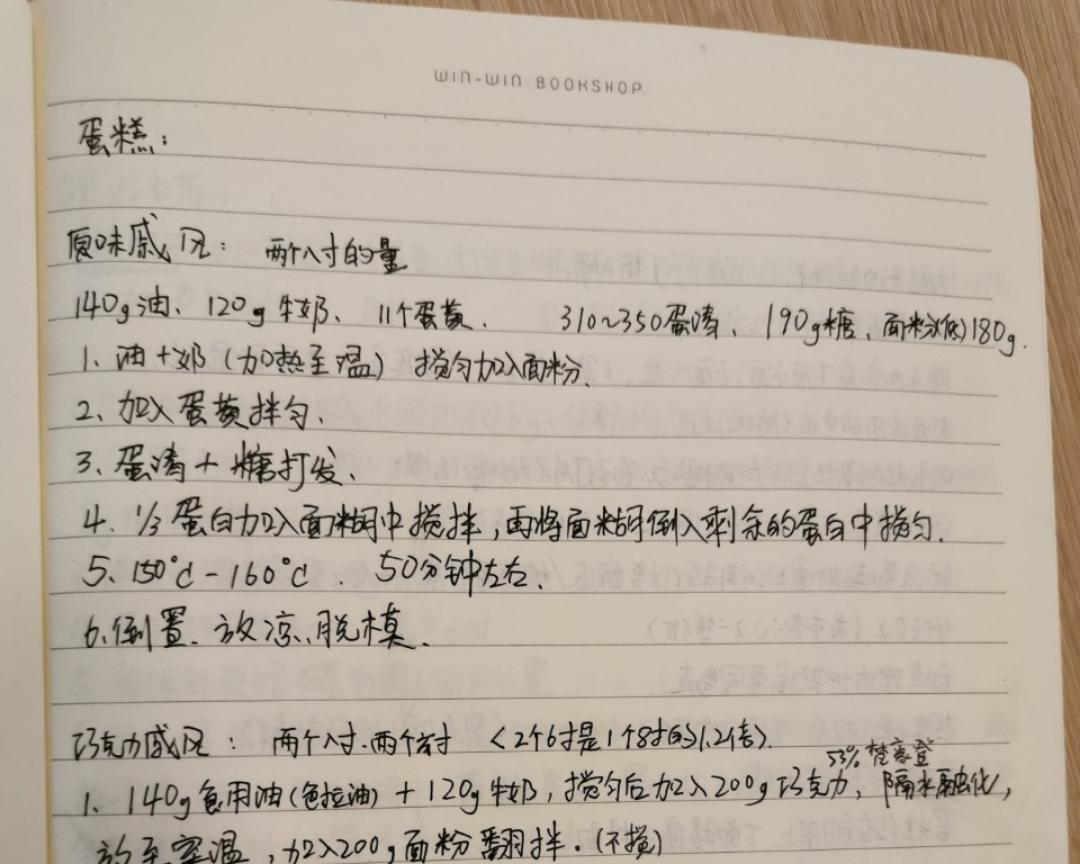 WIN-WIN BOOKSHOP
蛋糕：
原味戚风：两个八寸的量
140g油、120g牛奶、11个蛋黄. 310~350蛋清、190g糖、面粉(低)180g.
1、油+奶(加热至温) 搅匀加入面粉.
2、加入蛋黄拌匀.
3、蛋清+糖打发、
4、1/3蛋白加入面糊中搅拌,再将面糊倒入剩余的蛋白中搅匀.
5、150℃-160℃、50分钟左右.
6、倒置、放凉、脱模、
巧克力戚风：两个八寸、两个六寸 <2个6寸是1个8寸的1.2倍>.
53%梵豪登
1、140g食用油(色拉油)+120g牛奶,搅匀后加入200g巧克力,隔水融化,
放至室温,加入200g面粉翻拌.(不搅)